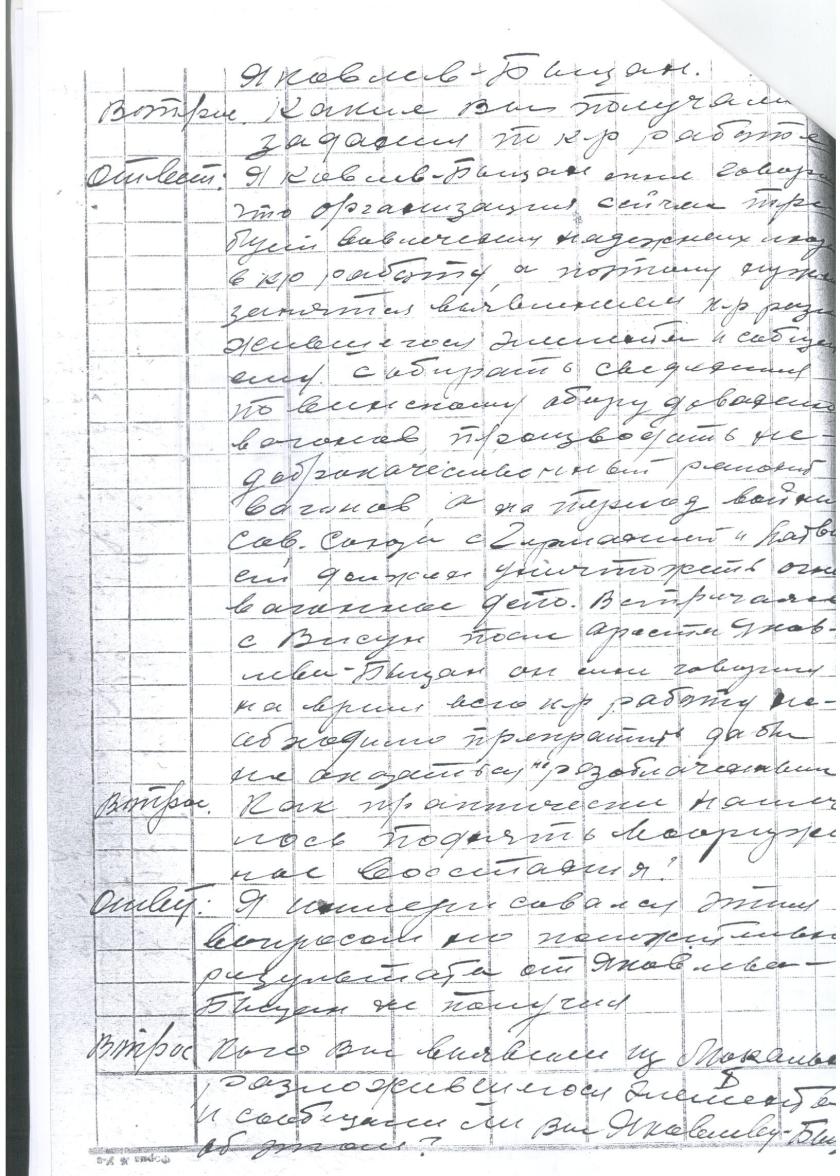 Яковлев-Быцан.
Вопрос. Какие Вы получали
задания по к.р работе
Ответ: Яковлев-Быцан мне говори
что организация сейчас тре
бует вовлечения надежных люд
в к.р работу, а поэтому нужн
занятся выявлением к-р разл
жившегося элемента и сообщен
ему. Собирать сведения
по воинскому оборудованию
вагонов, производить не-
доброкачественный ремонт
вагонов, а на период войны
Сов. Союза с Германией и Латви
ей должен уничтожить огне
вагонное депо. Встречаясь
с Висун после ареста Яков-
лева-Быцан он мне говорил
на время всю к-р работу не-
обходимо прекратить дабы
не оказаться разоблаченными
Вопрос. Как практически намеч
лось поднять вооружен
ное восстания?
Ответ: Я интересовался этим
вопросом но положительн
результата от Яковлева-
Быцан не получил
Вопрос Кого Вы выявили из
разложившегося элемента
и сообщали ли Вы Яковлеву-Быц
об этом?